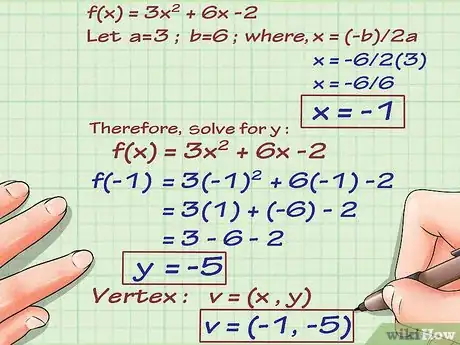 f(x) = 3x² + 6x - 2
Let a=3 ; b=6 ; where, x = (-b)/2a
x = -6/2(3)
x = -6/6
x = -1
Therefore, solve for y :
f(x) = 3x² + 6x - 2
f(-1) = 3(-1)² + 6(-1) - 2
= 3(1) + (-6) - 2
= 3 - 6 - 2
y = -5
Vertex : v = (x , y)
v = (-1, -5)
wikiHow